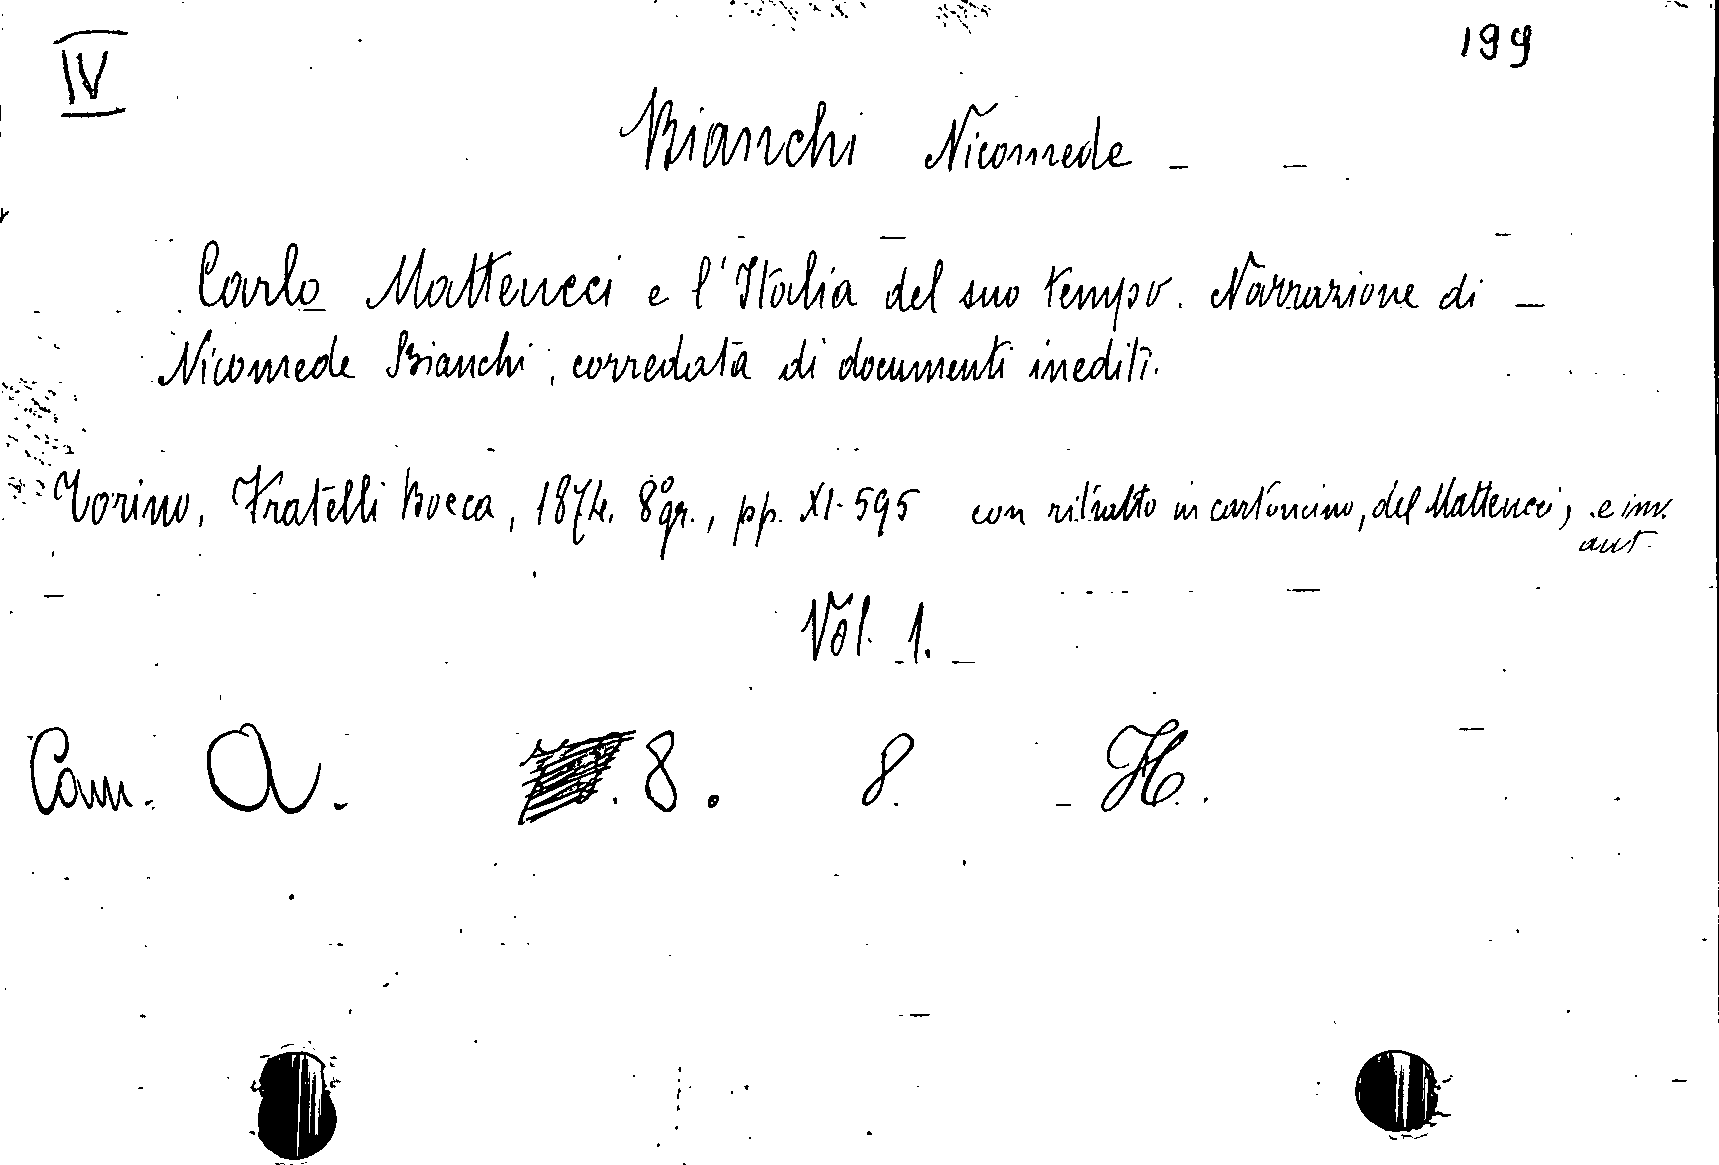 IV 199
Bianchi Nicomede
Carlo Matteucci e l'Italia del suo tempo. Narrazione di
Nicomede Bianchi, corredata di documenti inediti.
Torino, Fratelli Bocca, 1874. 8º gr., pp. XI-595 con ritratto in cartoncino, del Matteucci, e inv.
aut.
Vol. 1.
Cam. A. 8. 8. H.